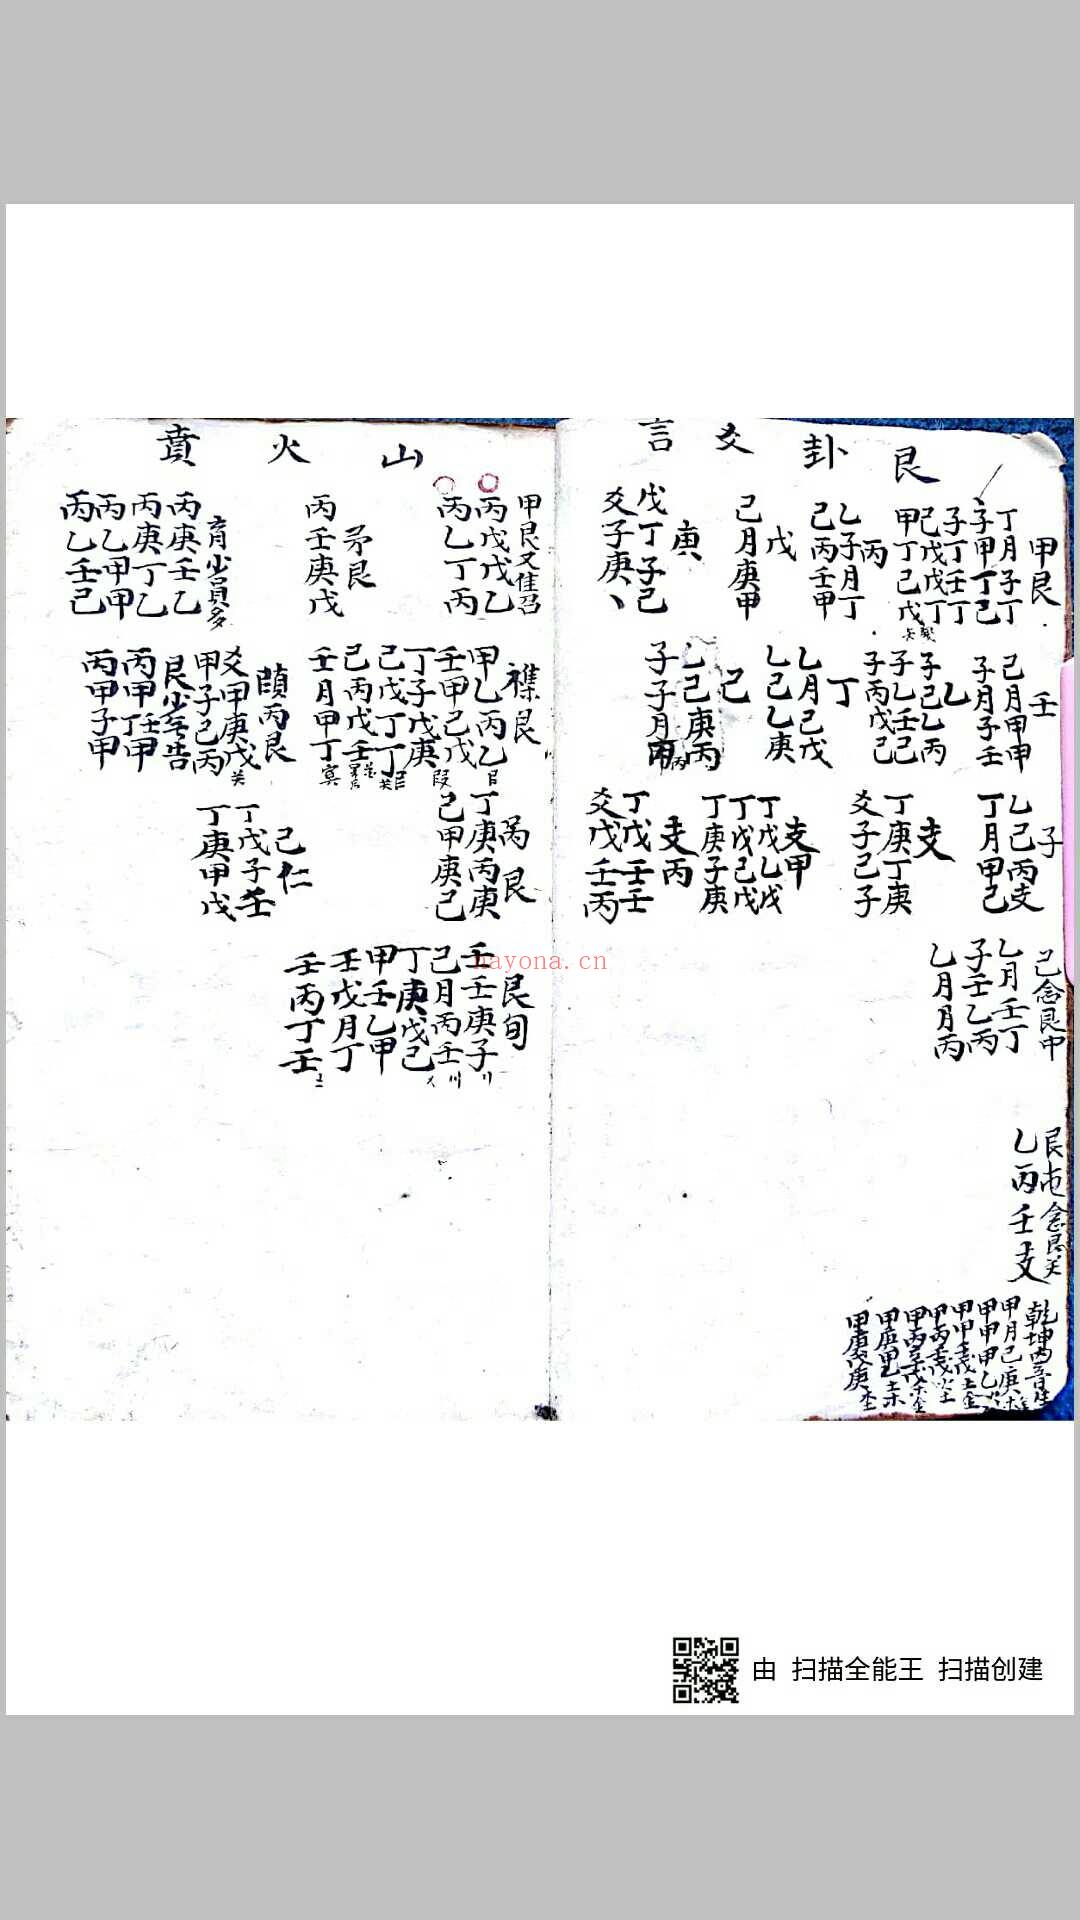 艮卦爻言
甲艮
丁月子丁
子甲丁己
子丁壬丁
己戊戊丁
甲丁己戊
丙
乙子月丁
己丙壬甲
戊
己月庚甲
庚
戊丁子己
爻子庚丶
壬
己月甲甲
子月子壬
乙
子己乙丙
子乙壬己
子丙戊己
丁
乙月己戊
乙己乙庚
己
乙己庚丙
子子月丙
子
乙己丙支
丁月甲己
支
丁庚丁庚
爻子己子
支甲
丁戊乙戊
丁戊己戊
丁庚子庚
支丙
丁戊壬壬
爻戊壬丙
己念艮中
乙月壬丁
子壬乙丙
乙月月丙
乙丙壬支
甲月己庚
甲甲甲乙
甲甲壬戊
甲丙壬戊
山火賁
甲艮又佳召
丙戊戊乙
丙乙丁丙
矛艮
丙壬庚戊
育少員多
丙庚壬乙
丙庚丁乙
丙乙甲甲
丙乙壬己
襟艮
甲乙丙乙
壬甲己戊
丁子戊庚
己戊丁丁
己丙戊壬
壬月甲丁
頤丙艮
爻甲庚戊
甲子己丙
丙甲壬甲
丙甲子甲
艮
丁庚丙庚
己甲庚己
己仁
丁戊子壬
丁庚甲戊
艮旬
壬壬庚子
己月丙壬
丁庚戊己
甲壬乙甲
壬戊月丁
壬丙丁壬
nayona.cn
由 扫描全能王 扫描创建